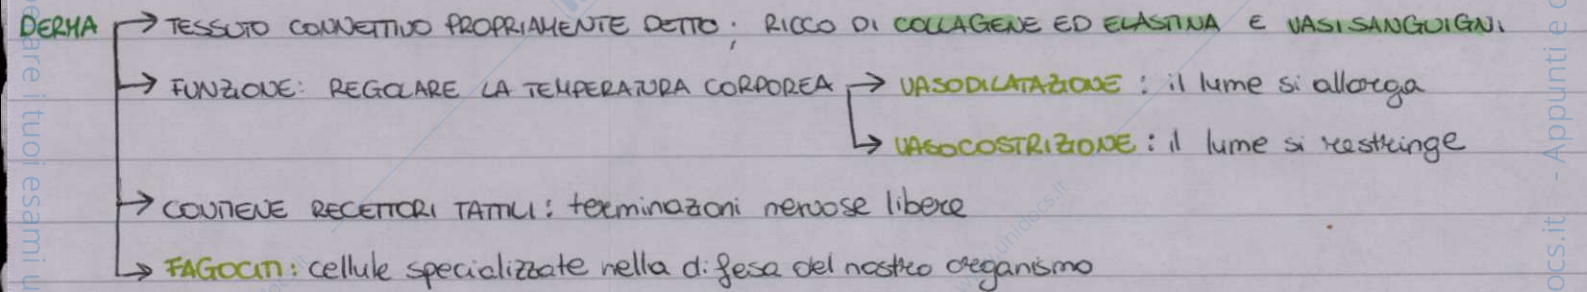 DERMA → TESSUTO CONNETTIVO PROPRIAMENTE DETTO; RICCO DI COLLAGENE ED ELASTINA E VASI SANGUIGNI
→ FUNZIONE: REGOLARE LA TEMPERATURA CORPOREA → VASODILATAZIONE: il lume si allarga
→ VASOCOSTRIZIONE: il lume si restringe
→ CONTIENE RECETTORI TATTILI: terminazioni nervose libere
→ FAGOCITI: cellule specializzate nella difesa del nostro organismo
are i tuoi esami u
ocs.it - Appunti e
unidocs.it